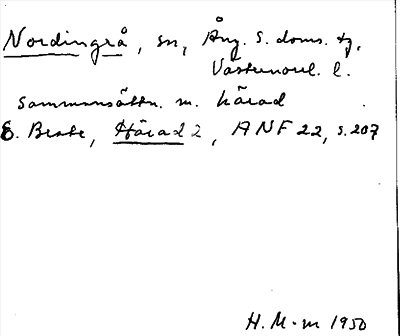 Nordingrå, sn, Ång. S. doms. tg,
Västernorrl. l.
Sammansättn. m. härad
E. Brate, Härad 2, ANF 22, s. 207
H. M-m 1950